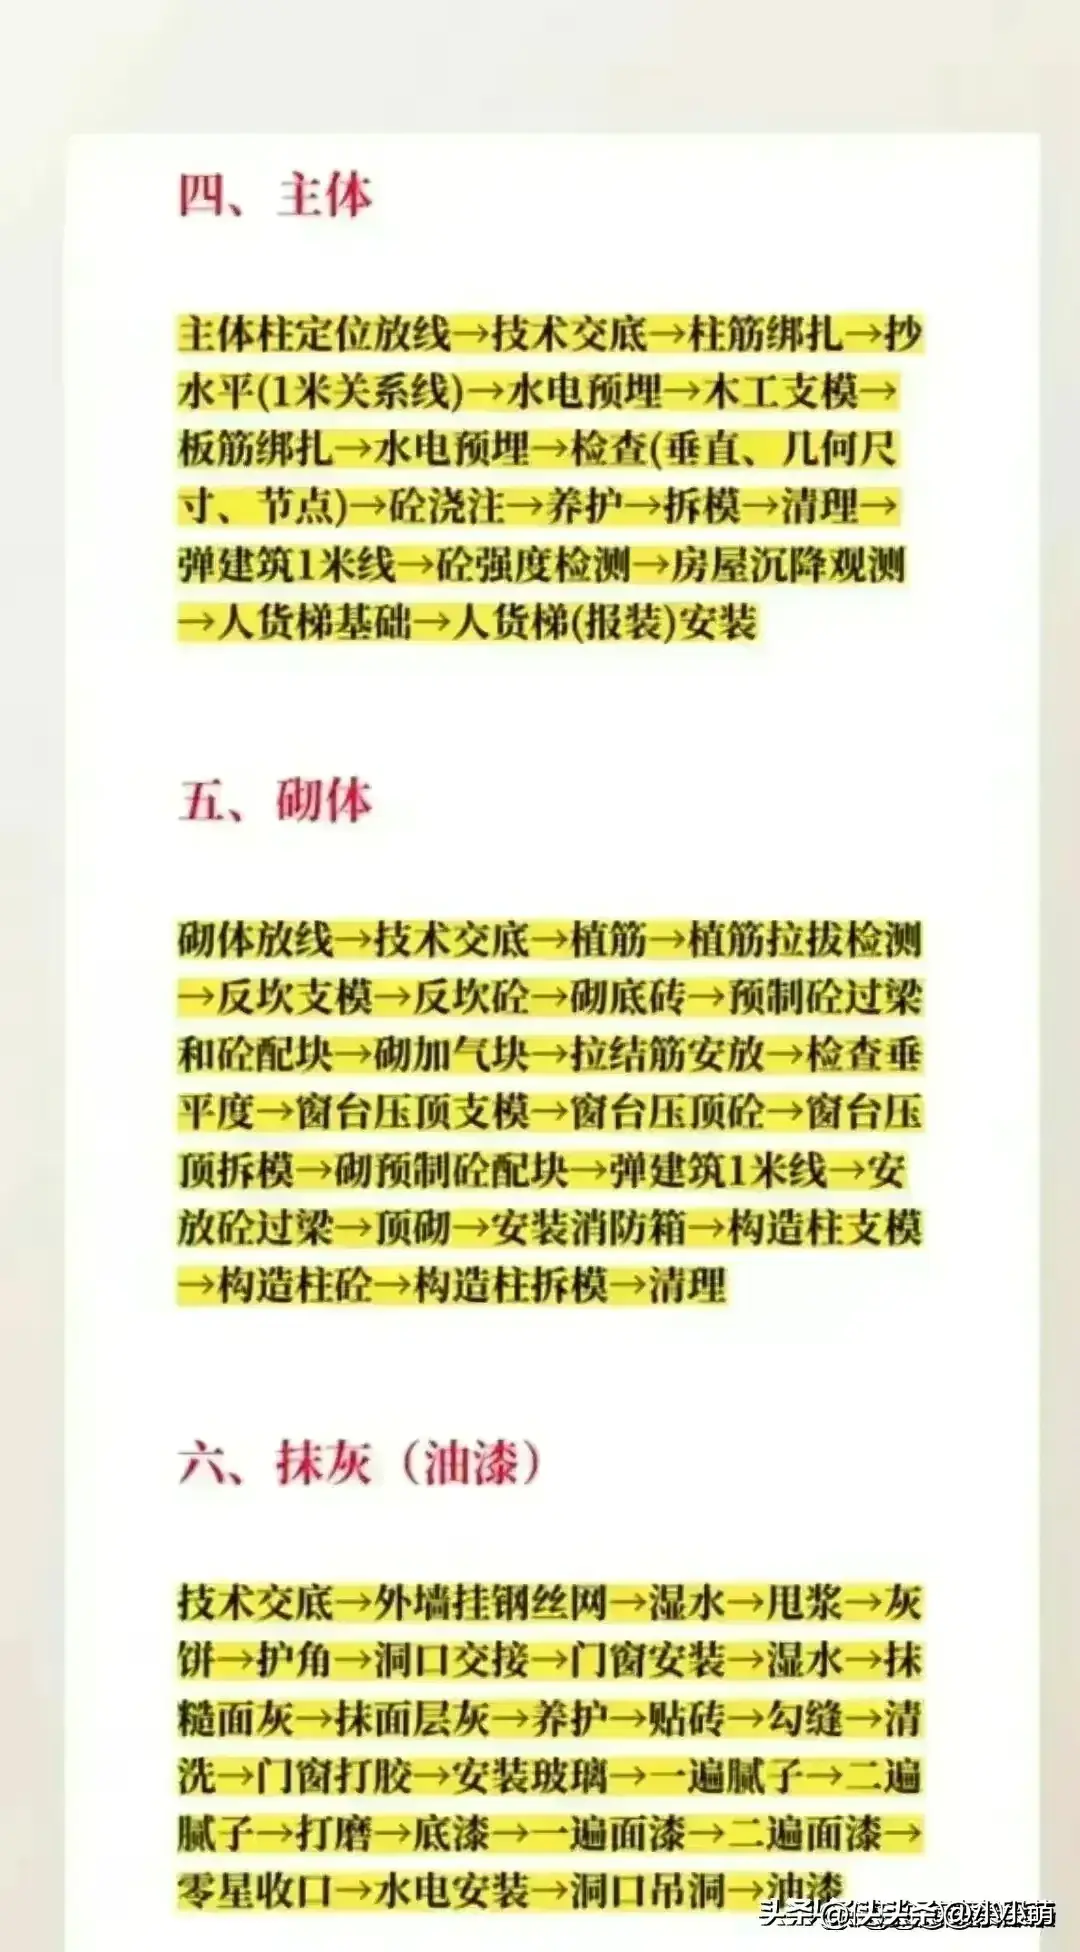 四、主体
主体柱定位放线→技术交底→柱筋绑扎→抄
水平(1米关系线)→水电预埋→木工支模→
板筋绑扎→水电预埋→检查(垂直、几何尺
寸、节点)→砼浇注→养护→拆模→清理→
弹建筑1米线→砼强度检测→房屋沉降观测
→人货梯基础→人货梯(报装)安装
五、砌体
砌体放线→技术交底→植筋→植筋拉拔检测
→反坎支模→反坎砼→砌底砖→预制砼过梁
和砼配块→砌加气块→拉结筋安放→检查垂
平度→窗台压顶支模→窗台压顶砼→窗台压
顶拆模→砌预制砼配块→弹建筑1米线→安
放砼过梁→顶砌→安装消防箱→构造柱支模
→构造柱砼→构造柱拆模→清理
六、抹灰（油漆）
技术交底→外墙挂钢丝网→湿水→甩浆→灰
饼→护角→洞口交接→门窗安装→湿水→抹
糙面灰→抹面层灰→养护→贴砖→勾缝→清
洗→门窗打胶→安装玻璃→一遍腻子→二遍
腻子→打磨→底漆→一遍面漆→二遍面漆→
零星收口→水电安装→洞口吊洞→油漆